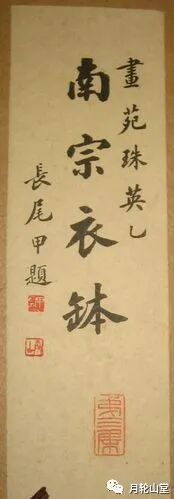 畫苑珠英乙
南宗衣鉢
長尾甲題
月轮山堂